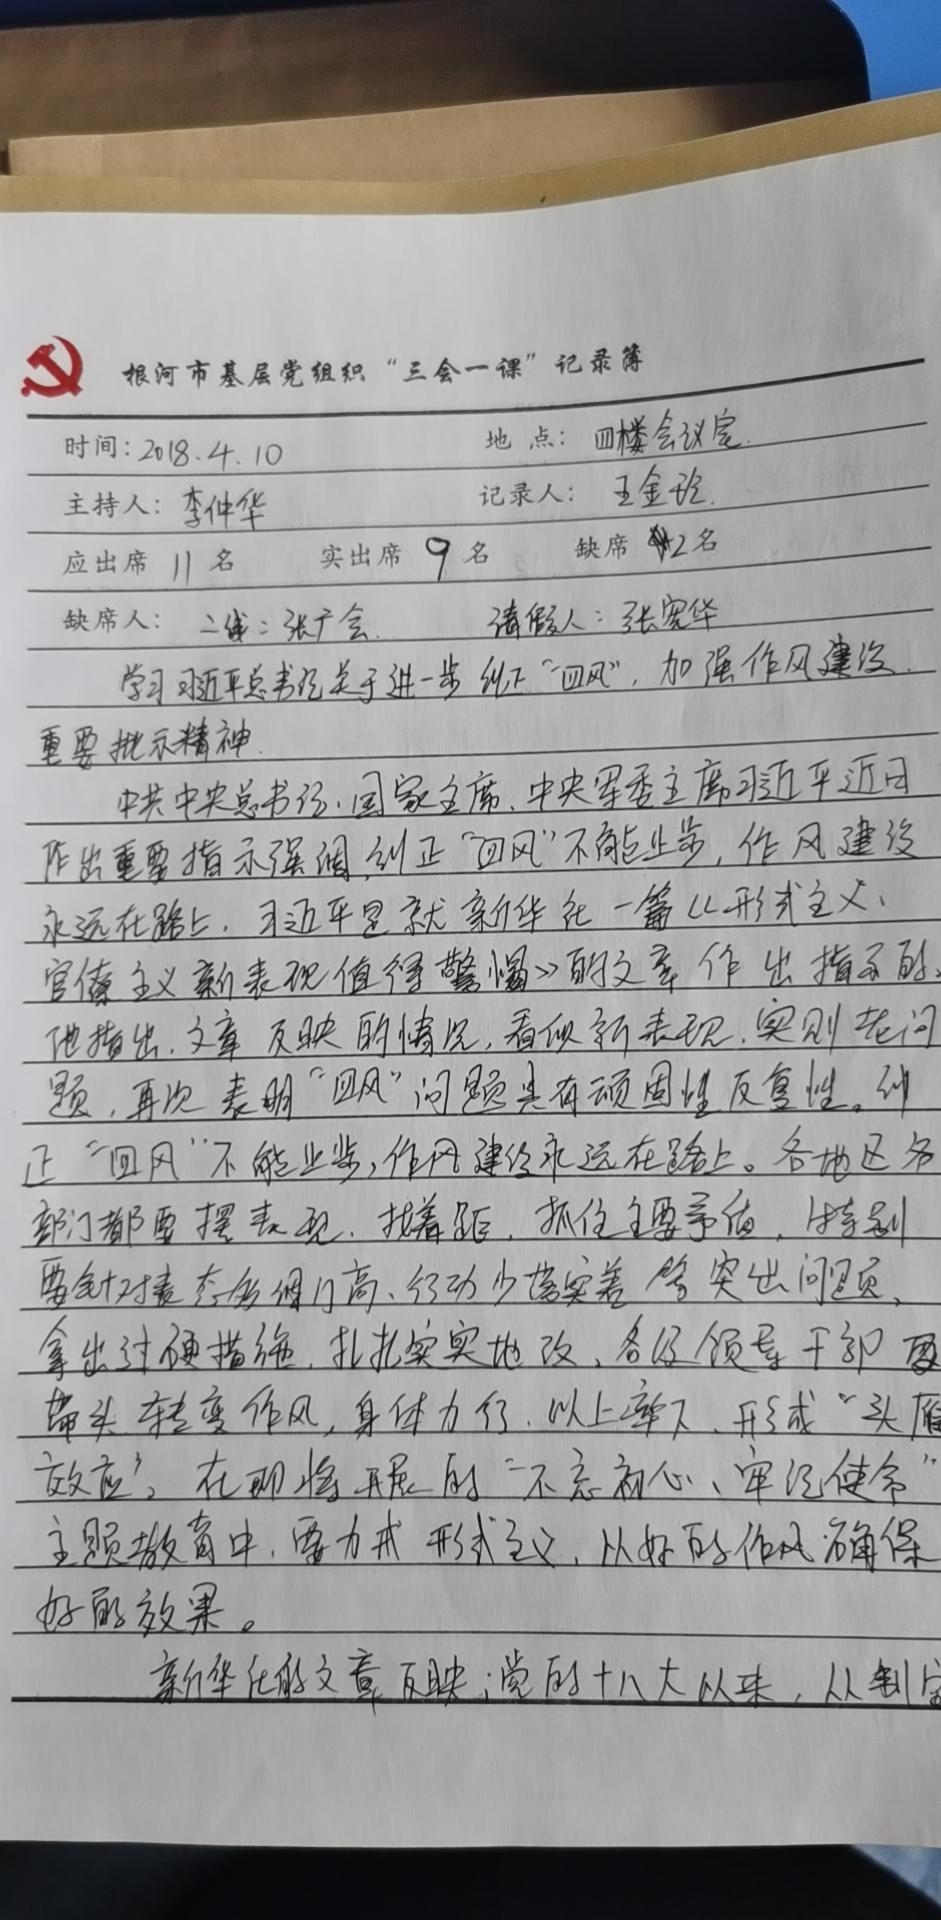 根河市基层党组织“三会一课”记录簿
时间：2018.4.10 地点：四楼会议室.
主持人：李仲华 记录人：王金玲.
应出席 11 名 实出席 9 名 缺席 2 名
缺席人：二线：张广会. 请假人：张宪华
学习习近平总书记关于进一步纠正“四风”，加强作风建设.
重要批示精神.
中共中央总书记、国家主席、中央军委主席习近平近日
作出重要指示强调,纠正“四风”不能止步，作风建设
永远在路上，习近平是就新华社一篇《形式主义、
官僚主义新表现值得警惕》的文章作出指示的。
他指出，文章反映的情况，看似新表现，实则老问
题，再次表明“四风”问题具有顽固性反复性。纠
正“四风”不能止步，作风建设永远在路上。各地区各
部门都要摆表现，找差距，抓住主要矛盾，特别
要针对表态多调门高、行动少落实差等突出问题，
拿出过硬措施，扎扎实实地改，各级领导干部要
带头转变作风，身体力行，以上率下，形成“头雁
效应”，在即将开展的“不忘初心、牢记使命”
主题教育中，要力戒形式主义，以好的作风确保
好的效果。
新华社的文章反映；党的十八大以来，从制定